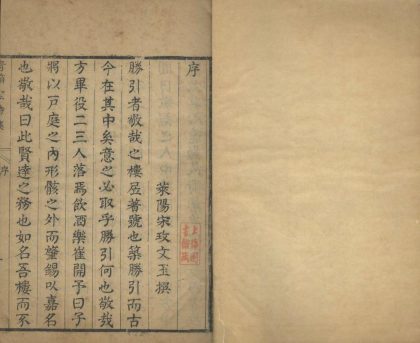 序
萊陽宋玫文玉撰
勝引者敬哉之樓居著號也築勝引而古
今在其中矣意之必取乎勝引何也敬哉
方畢役二三人落焉飲酒樂崔開予曰子
將以戸庭之內形骸之外而肇錫以嘉名
也敬哉曰此賢達之務也如名吾樓而不
序